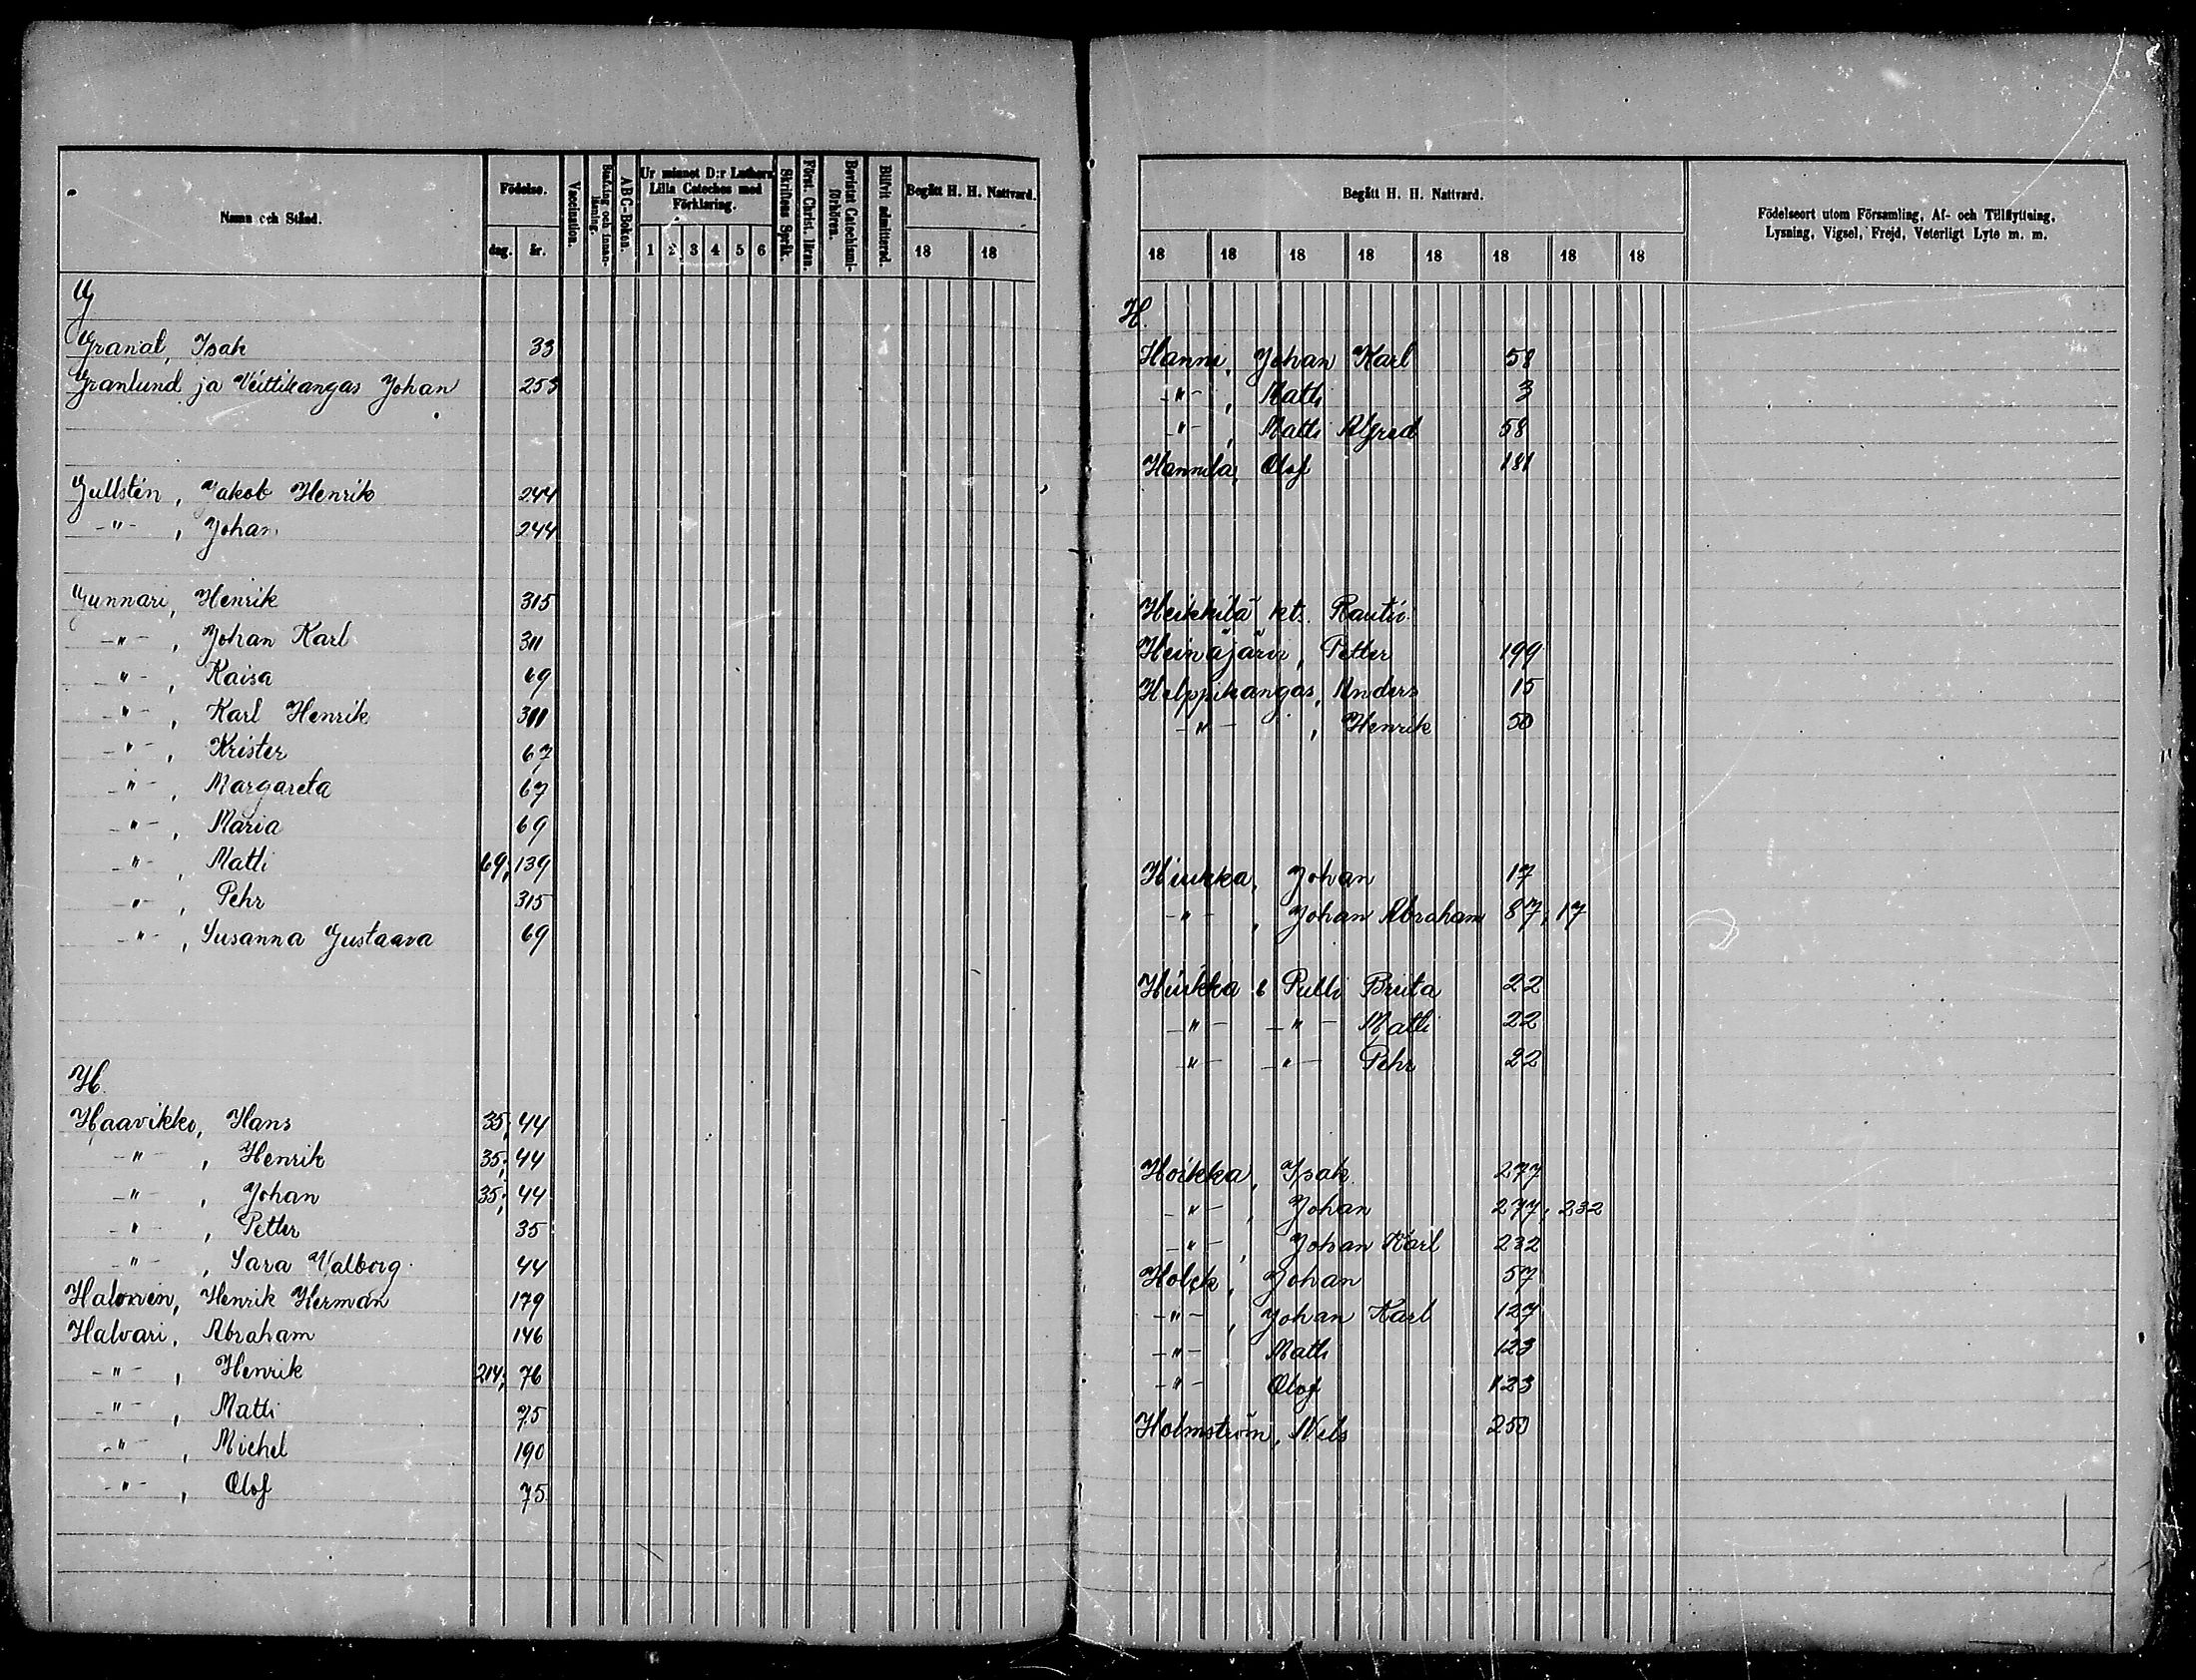 Namn och Stånd.
Födelse.
dag. år.
Vaccination.
Stafning och innanläsning.
ABC-Boken.
Ur minnet D:r Luthers Lilla Cateches med Förklaring.
1 2 3 4 5 6
Skriftens Språk.
Först. Christ. läran.
Bevistat Catechismiförhören.
Blifvit admitterad.
Begått H. H. Nattvard.
18 18
G
Granat, Isak 33
Granlund ja Veittikangas Johan 253
Gullstén, Jakob Henrik 244
-"- , Johan 244
Gunnari, Henrik 315
-"- , Johan Karl 311
-"- , Kaisa 69
-"- , Karl Henrik 311
-"- , Krister 67
-"- , Margareta 67
-"- , Maria 69
-"- , Matti 69; 139
-"- , Pehr 315
-"- , Susanna Gustaava 69
H.
Haavikko, Hans 35; 44
-"- , Henrik 35; 44
-"- , Johan 35; 44
-"- , Petter 35
-"- , Sara Valborg 44
Halonen, Henrik Herman 179
Halvari, Abraham 146
-"- , Henrik 214; 76
-"- , Matti 75
-"- , Michel 190
-"- , Olof 75
Begått H. H. Nattvard.
18 18 18 18 18 18 18 18
Födelseort utom Församling, Af- och Tillflyttning, Lysning, Vigsel, Frejd, Veterligt Lyte m. m.
H.
Hanni, Johan Karl 58
-"- , Matti 3
-"- , Matti Alfred 58
Hannila, Olof 181
Heikkilä kts. Rautio
Heinäjärvi, Petter 199
Helppikangas, Anders 15
-"- , Henrik 50
Hiukka, Johan 17
-"- , Johan Abraham 87; 17
Hiukka l Pulli Briita 22
-"- -"- Matti 22
-"- -"- Pehr 22
Hoikka, Isak 277
-"- , Johan 277; 232
-"- , Johan Karl 232
Holck, Johan 57
-"- , Johan Karl 127
-"- Matti 123
-"- Olof 123
Holmström, Nels 250